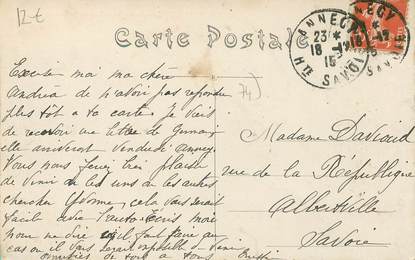 12-€
Carte Postale
ANNECY
23 *
18 -12
15
HTE SAVOIE
Excuse moi ma chère
Andréa de n'avoir pas repondu
plus tôt a ta carte. Je viens
de recevoir une lettre de
elle arriveront Vendredi annecy.
Vous nous feriez bien plaisir
de venir les uns ou les autres
chercher Yvonne, cela vous serait
facil avec l'auto. Ecris moi
pour me dire ce qu'il faut faire au
cas ou il vous serait impossible de venir
amitiés de tous a tous
74
Madame Davioud
rue de la République
Albertville
Savoie